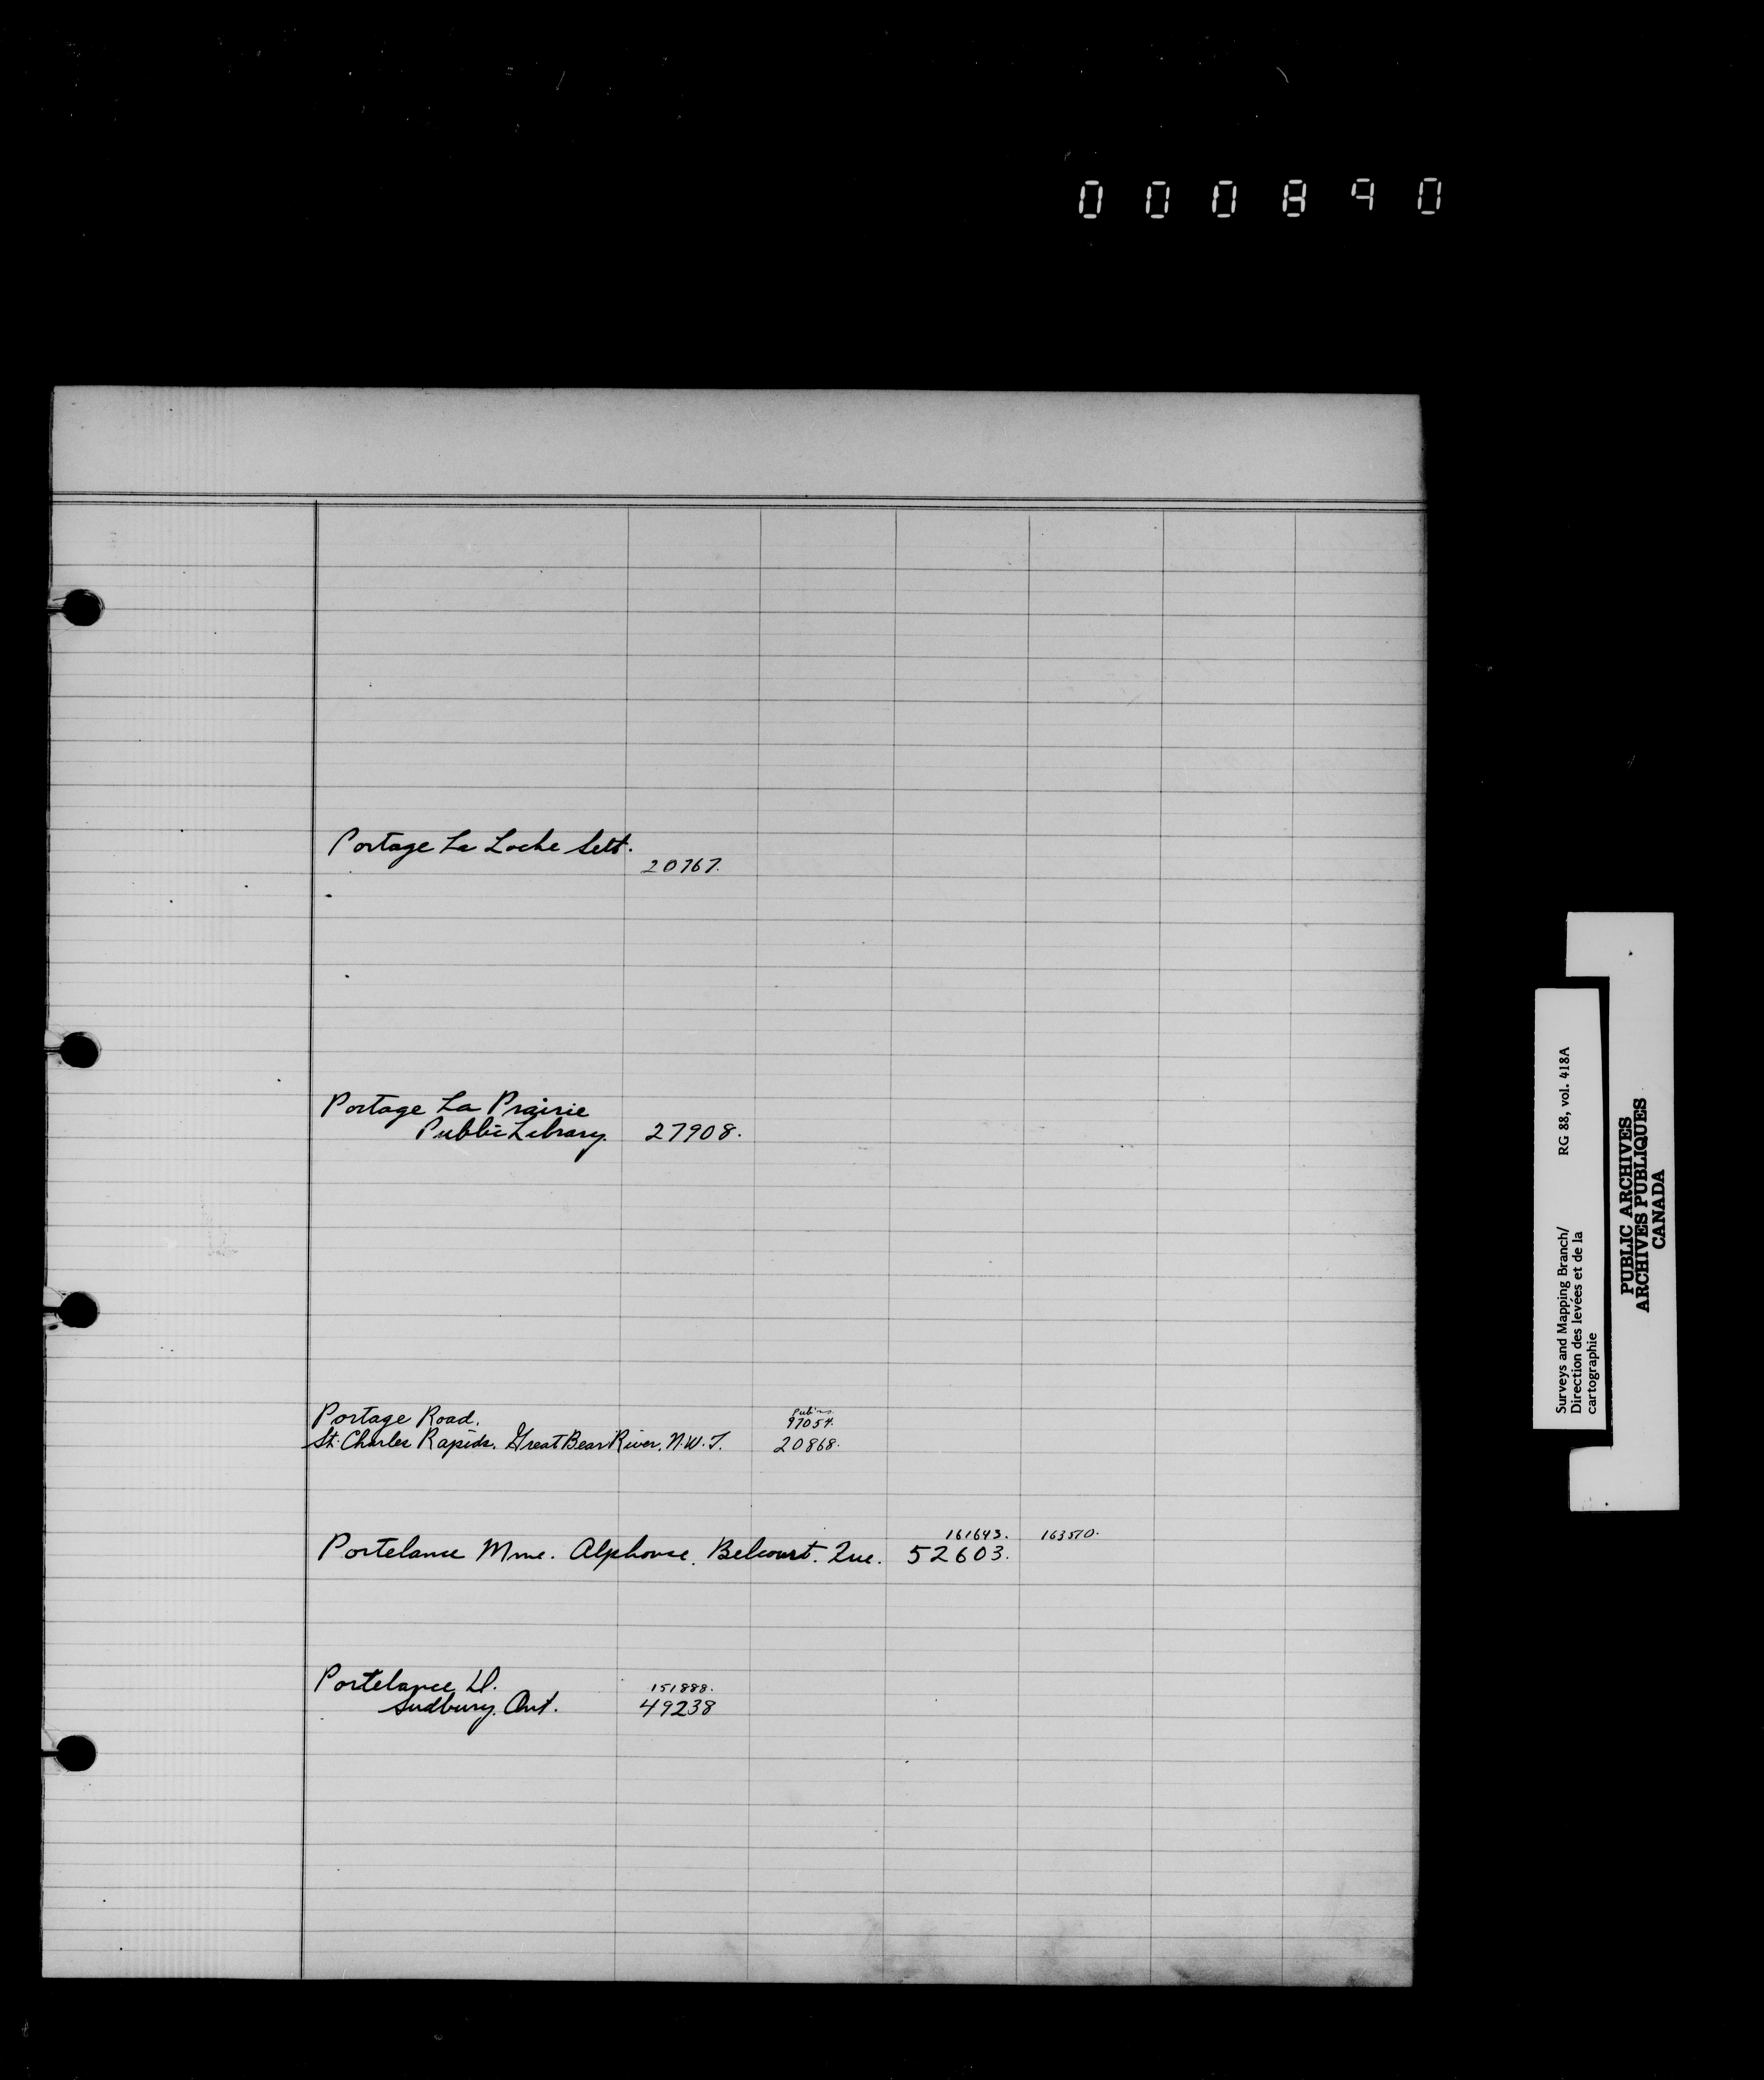 000840
Portage La Loche Sett.
20767.
Portage La Prairie
Public Library. 27908.
Portage Road.
97054.
St. Charles Rapids. Great Bear River, N.W.T. 20868.
161643. 163510.
Portelance Mme. Alphonse. Belcourt. Que. 52603.
Portelance D.
151888.
Sudbury. Ont. 49238
Surveys and Mapping Branch/ RG 88, vol. 418A
Direction des levées et de la
cartographie
PUBLIC ARCHIVES
ARCHIVES PUBLIQUES
CANADA